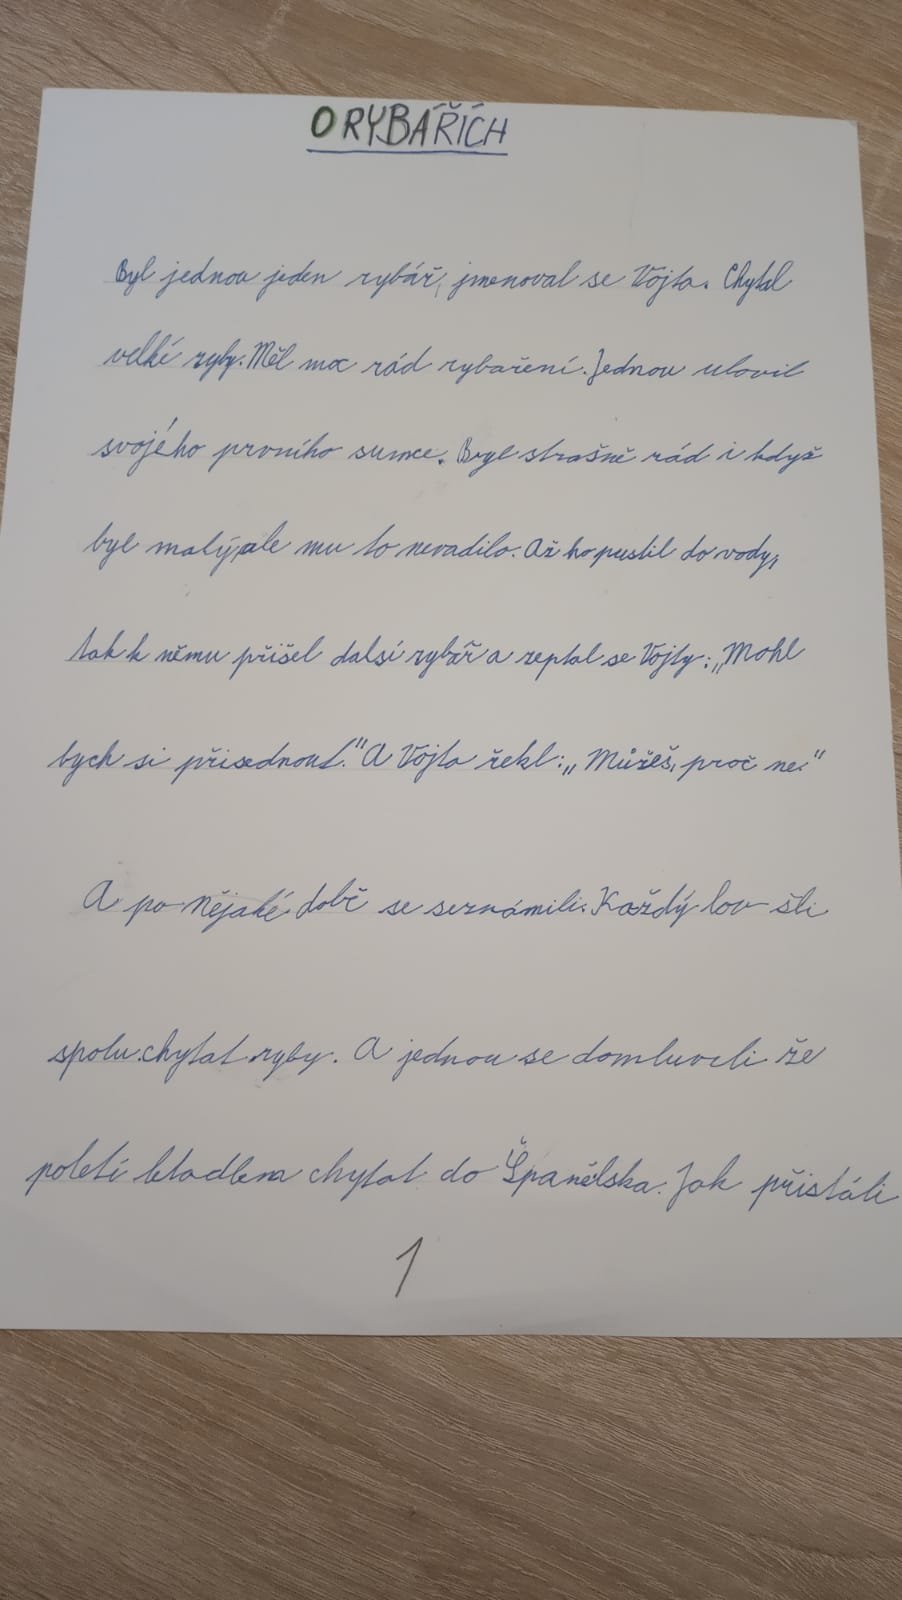 O RYBÁŘÍCH
Byl jednou jeden rybář, jmenoval se Vojta. Chytal
velké ryby. Měl moc rád rybaření. Jednou ulovil
svojého prvního sumce. Byl strašně rád i když
byl malý, ale mu to nevadilo. Až ho pustil do vody,
tak k němu přišel dalsí rybář a zeptal se Vojty: „Mohl
bych si přisednout." A Vojta řekl: „Můžeš, proč ne."
A po Nějaké době se seznámili. Každý lov šli
spolu chytat ryby. A jednou se domluvili že
poletí letadlem chytat do Španělska. Jak přistáli
1